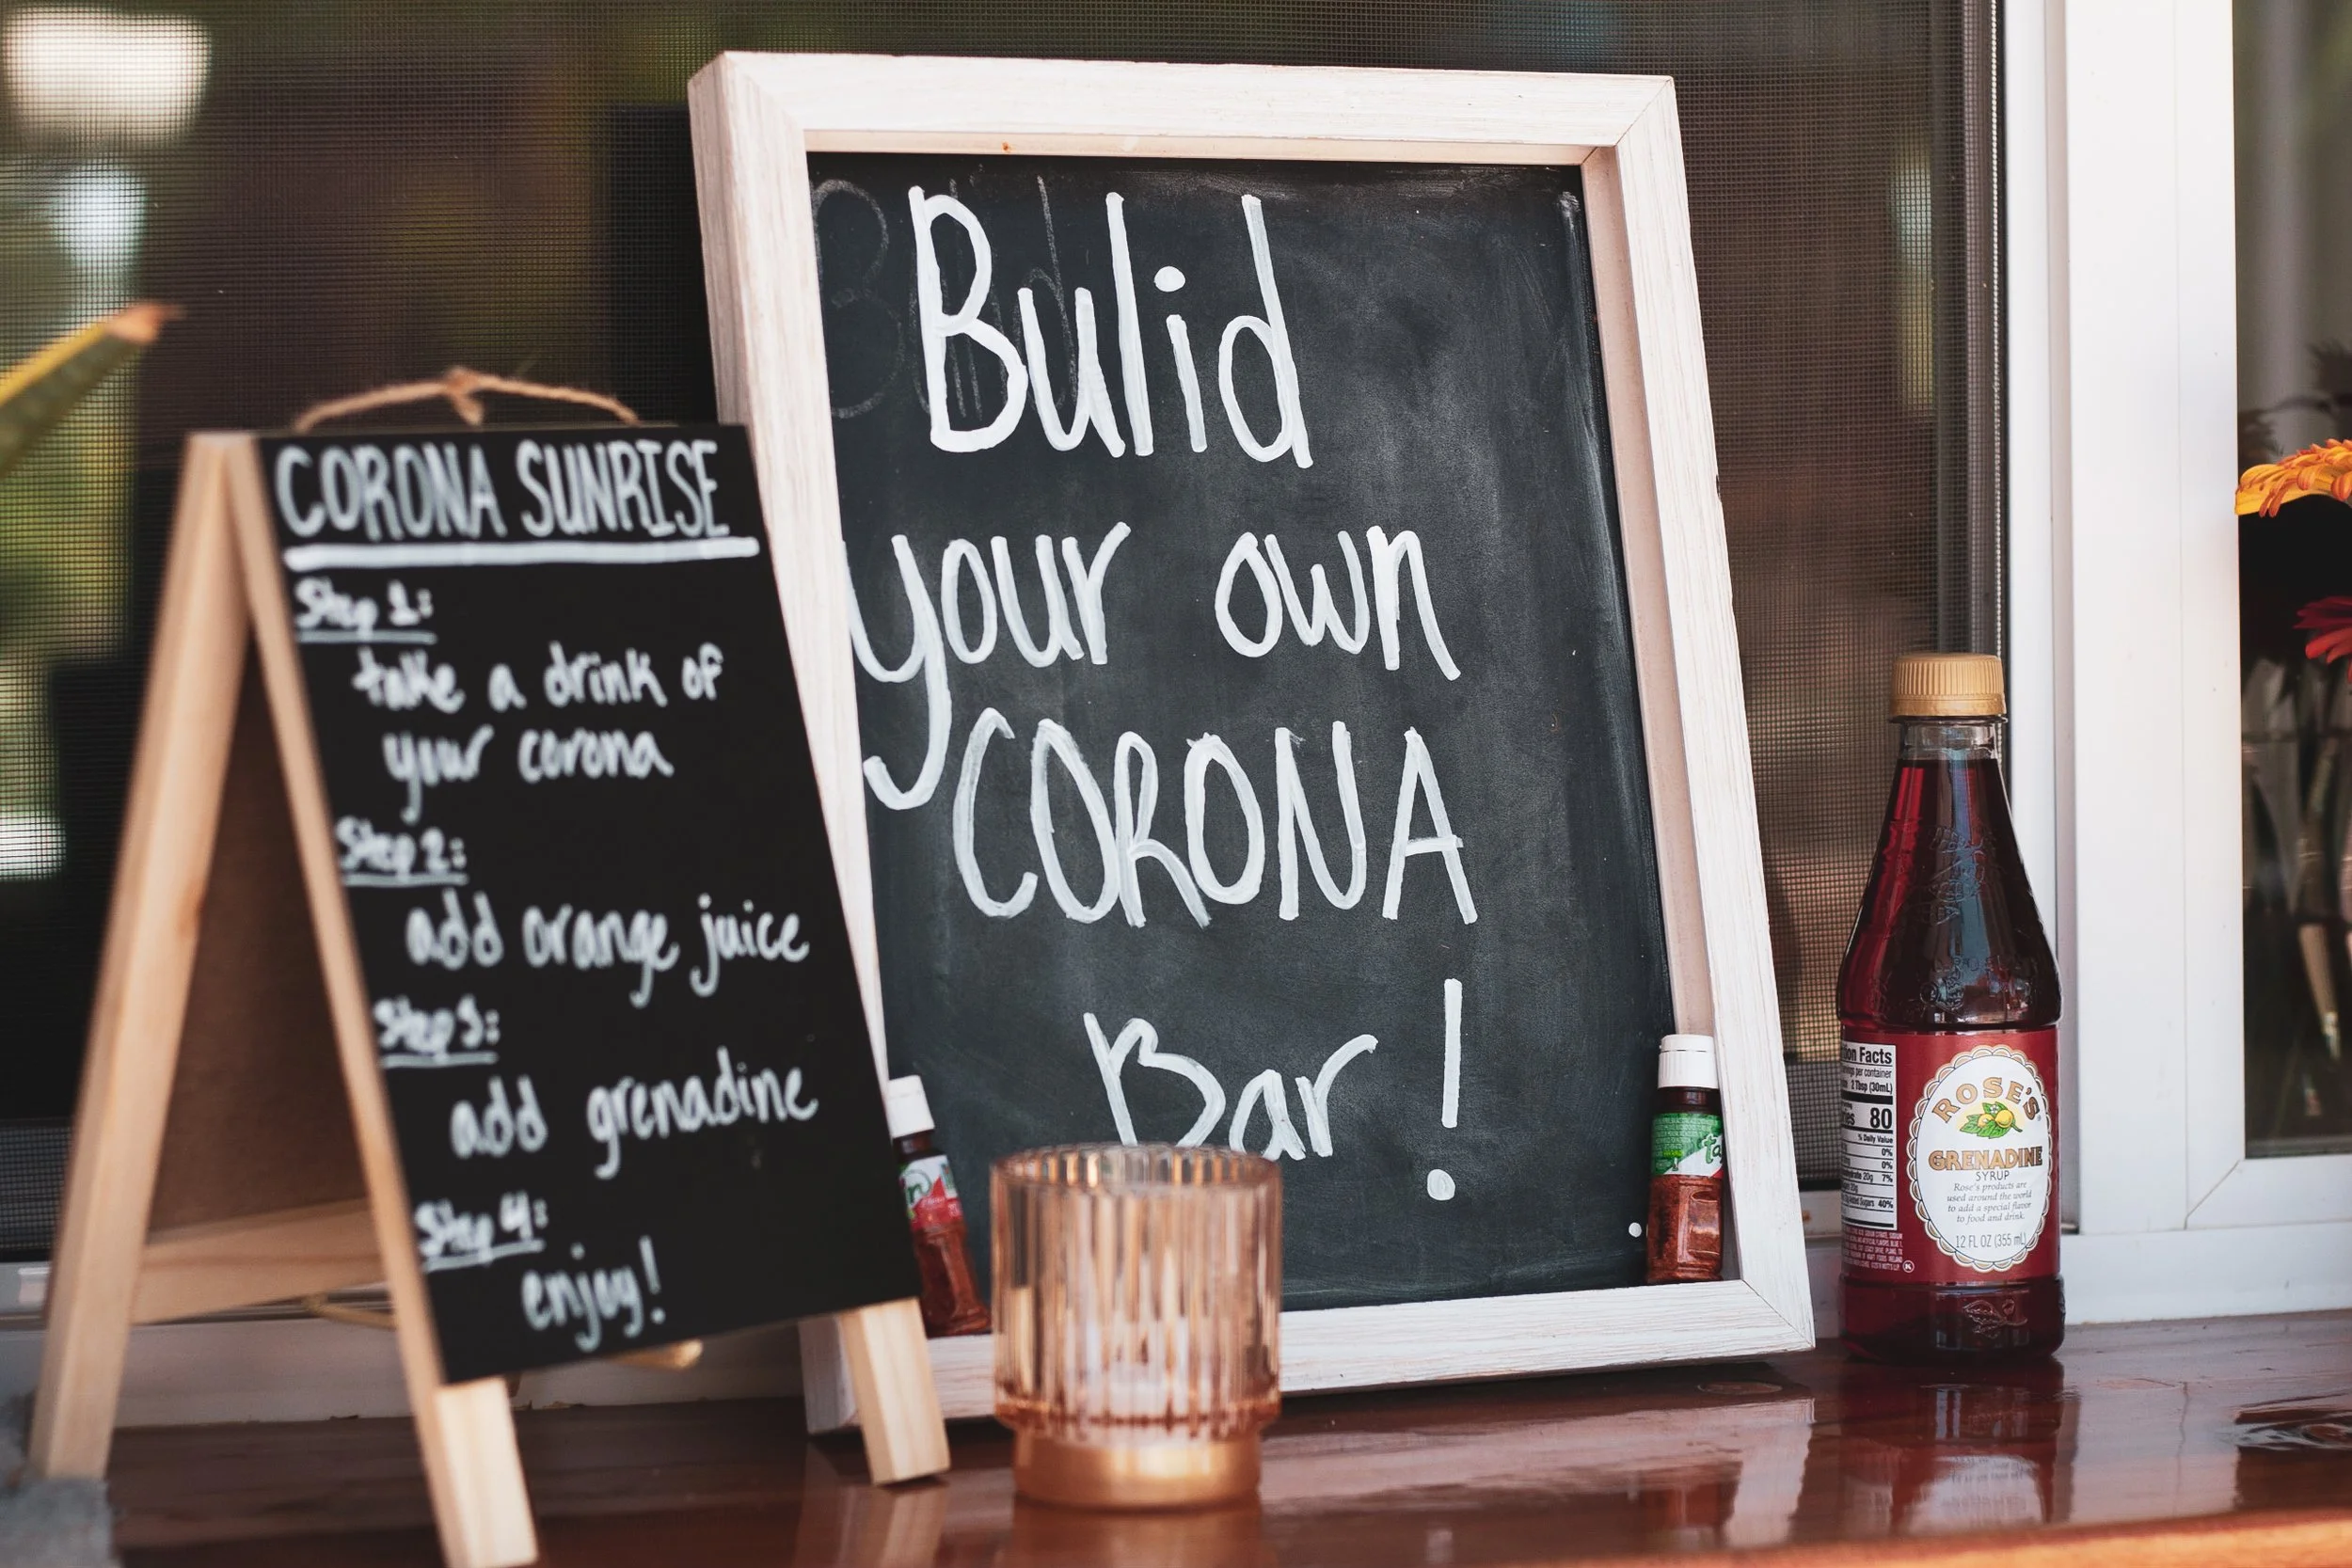 CORONA SUNRISE
Step 1:
take a drink of
your corona
Step 2:
add orange juice
Step 3:
add grenadine
Step 4:
enjoy!
Bulid
your own
CORONA
Bar!
ROSE'S
GRENADINE
SYRUP
Rose's products are
used around the world
to add a special flavor
to food and drink.
12 FL OZ (355 mL)
on Facts
per container
2 Tbsp (30mL)
80
% Daily Value
0%
0%
20g 7%
Added Sugars 40%